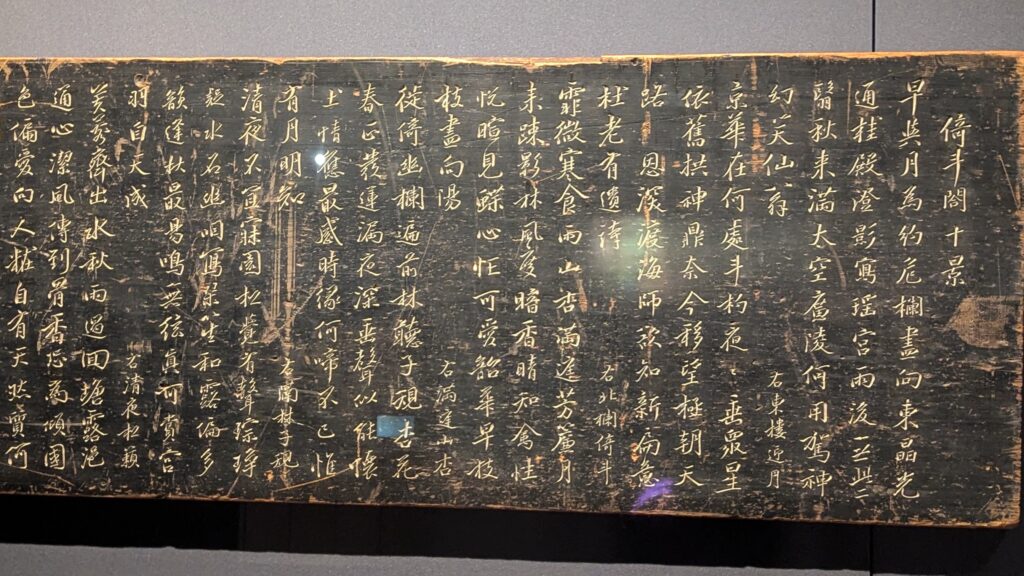 倚斗閣十景
早與月為約危欄盡向東晶光
通桂殿澄影寫瑤宮雨後三與二
翳秋來滿太空廣陵何用駕神
幻笑仙翁 右東樓近月
京華在何處斗杓夜夜垂眾星
依舊拱神鼎奈今移望極朝天
路恩深瘴海師欲知新雨意
杜老有遺詩 右北欄倚斗
霏微寒食雨山杏滿逕芳薝月
未疎影林風度暗香晴知禽性
悅暄見蝶心忙可愛韶華早枝
枝盡向陽 右滿逕山杏
徙倚幽欄遍前林聽子規杏花
春正發蓮漏夜深垂聲似能懷
土情應最感時緣何啼不已惟
有月明知 右南樓子規
清夜不冥寐園松覺有聲琮琤
疑水石幽咽寫琴笙和露偏多
韻逢秋最易鳴無絃真可賞宮
羽自天成 右清夜松籟
芙蓉齊出水秋雨過回塘露浥
通心潔風傳到骨香恐為傾國
色偏愛向人粧自有天然寶何